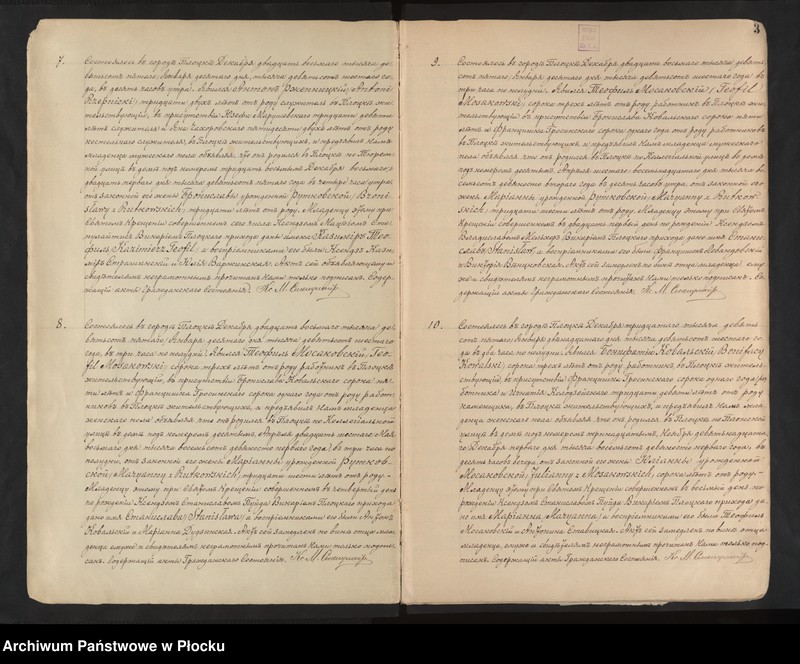 3
7. Состоялось въ городѣ Плоцкѣ Декабря двадцать восьмаго тысяча де-
вятьсотъ пятаго, Января десятаго дня, тысяча девятьсотъ шестаго го-
да, въ десять часовъ утра. Явился Антонъ Рженницкій, (Antoni
Rzepnicki) тридцати двухъ лѣтъ отъ роду служитель въ Плоцкѣ жи-
тельствующій, въ присутствіи Іосифа тридцати девяти
лѣтъ служителя и пятидесяти двухъ лѣтъ отъ роду
костельнаго служителя, въ Плоцкѣ жительствующихъ, и предъявилъ Намъ
младенца мужескаго пола объявляя, что онъ родился въ Плоцкѣ по
улицѣ въ домѣ подъ номеромъ тридцать восьмымъ Декабря восьмаго
двадцать перваго дня тысяча девятьсотъ пятаго года въ четыре часа утра
отъ законной его жены Брониславы урожденной Рутковской (Broni-
sławy z Rutkowskich) тридцати лѣтъ отъ роду. Младенцу этому при
Святомъ Крещеніи совершенномъ сего числа Ксендзомъ
Викаріемъ Плоцкаго прихода дано имя Казиміръ Тео-
филъ Kazimierz Teofil а воспріемниками его были Ксендзъ Кази-
міръ и Юлія Актъ сей объявляющему и
свидѣтелямъ неграмотнымъ прочитанъ Нами только подписанъ. Содер-
жащій акты Гражданскаго Состоянія. Кс. М.
8. Состоялось въ городѣ Плоцкѣ Декабря двадцать восьмаго тысяча де-
вятьсотъ пятаго, Января десятаго дня тысяча девятьсотъ шестаго
года, въ три часа по полудни. Явился Теофилъ Мосаковскій, (Teo-
fil Mosakowski) сорока трехъ лѣтъ отъ роду работникъ въ Плоцкѣ
жительствующій, въ присутствіи Бронислава Ковальскаго сорока пя-
ти лѣтъ и Францишка сорока одного года отъ роду работ-
никовъ въ Плоцкѣ жительствующихъ, и предъявилъ Намъ младенца
женскаго пола объявляя что онъ родился въ Плоцкѣ по Коллегіальной
улицѣ въ домѣ подъ номеромъ десятымъ, Апрѣля двадцать шестаго Мая
восьмаго дня тысяча восемьсотъ девяносто перваго года въ три часа по
полудни, отъ законной его жены Маріанны урожденной Рутков-
ской (Maryanny z Rutkowskich) тридцати шести лѣтъ отъ роду.-
Младенцу этому при Святомъ Крещеніи совершенномъ въ четвертый день
по рожденіи Ксендзомъ Станиславомъ Викаріемъ Плоцкаго прихода
дано имя Станислава (Stanisława) а воспріемниками его были Антонъ
Ковальскій и Маріанна Актъ сей замедленъ по вина отца мла-
денца ему же и свидѣтелямъ неграмотнымъ прочитанъ Нами только подпи-
санъ. Содержащій акты Гражданскаго Состоянія. Кс. М.
9. Состоялось въ городѣ Плоцкѣ Декабря двадцать восьмаго тысяча девять
сотъ пятаго, Января десятаго дня тысяча девятьсотъ шестаго года въ
три часа по полудни. Явился Теофилъ Мосаковскій (Teofil
Mosakowski) сорока трехъ лѣтъ отъ роду работникъ въ Плоцкѣ жи-
тельствующій въ присутствіи Бронислава Ковальскаго сорока пяти
лѣтъ и Францишка сорока одного года отъ роду работниковъ
въ Плоцкѣ жительствующихъ, и предъявилъ Намъ младенца мужескаго
пола объявляя что онъ родился въ Плоцкѣ по Коллегіальной улицѣ въ домѣ
подъ номеромъ десятымъ, Апрѣля шестаго восемнадцатаго дня тысяча во-
семьсотъ девяносто втораго года въ десять часовъ утра, отъ законной его
жены Маріанны урожденной Рутковской (Maryanny z Rutkow-
skich) тридцати шести лѣтъ отъ роду. Младенцу этому при Святомъ
Крещеніи совершенномъ въ двадцать первый день по рожденіи Ксендзомъ
Викаріемъ Плоцкаго прихода дано имя Стани-
славъ (Stanisław), а воспріемниками его были Францишекъ
и Викторія Актъ сей замедленъ по вина отца младенца ему
же и свидѣтелямъ неграмотнымъ прочитанъ Нами только подписанъ. Со-
держащій акты Гражданскаго Состоянія. Кс. М.
10. Состоялось въ городѣ Плоцкѣ Декабря тридцатаго тысяча девять
сотъ пятаго, Января двѣнадцатаго дня, тысяча девятьсотъ шестаго го-
да въ два часа по полудни. Явился Бонифатій Ковальскій, Bonifacy
Kowalski, сорока трехъ лѣтъ отъ роду, работникъ въ Плоцкѣ житель-
ствующій, въ присутствіи Францишка сорока одного года ра-
ботника и Игнатія тридцати девяти лѣтъ отъ роду
каменщика, въ Плоцкѣ жительствующихъ, и предъявилъ Намъ мла-
денца женскаго пола объявляя что онъ родился въ Плоцкѣ по Плонской
улицѣ въ домѣ подъ номеромъ тринадцатымъ, Ноября девятнадцата-
го Декабря перваго дня тысяча восемьсотъ девяносто перваго года, въ
десять часовъ вечера, отъ законной его жены Юліанны урожденной
Мосаковской, (Julianny z Mosakowskich), сорока лѣтъ отъ роду.-
Младенцу этому при Святомъ Крещеніи совершенномъ въ восьмый день по
рожденіи Ксендзомъ Станиславомъ Викаріемъ Плоцкаго прихода да-
но имя Маріанна Maryanna, а воспріемниками его были Теофилъ
Мосаковскій и Антонина Ставицкая. Актъ сей замедленъ по вина отца
младенца, ему же и свидѣтелямъ неграмотнымъ прочитанъ Нами только под-
писанъ. Содержащій акты Гражданскаго Состоянія. Кс. М.
Archiwum Państwowe w Płocku